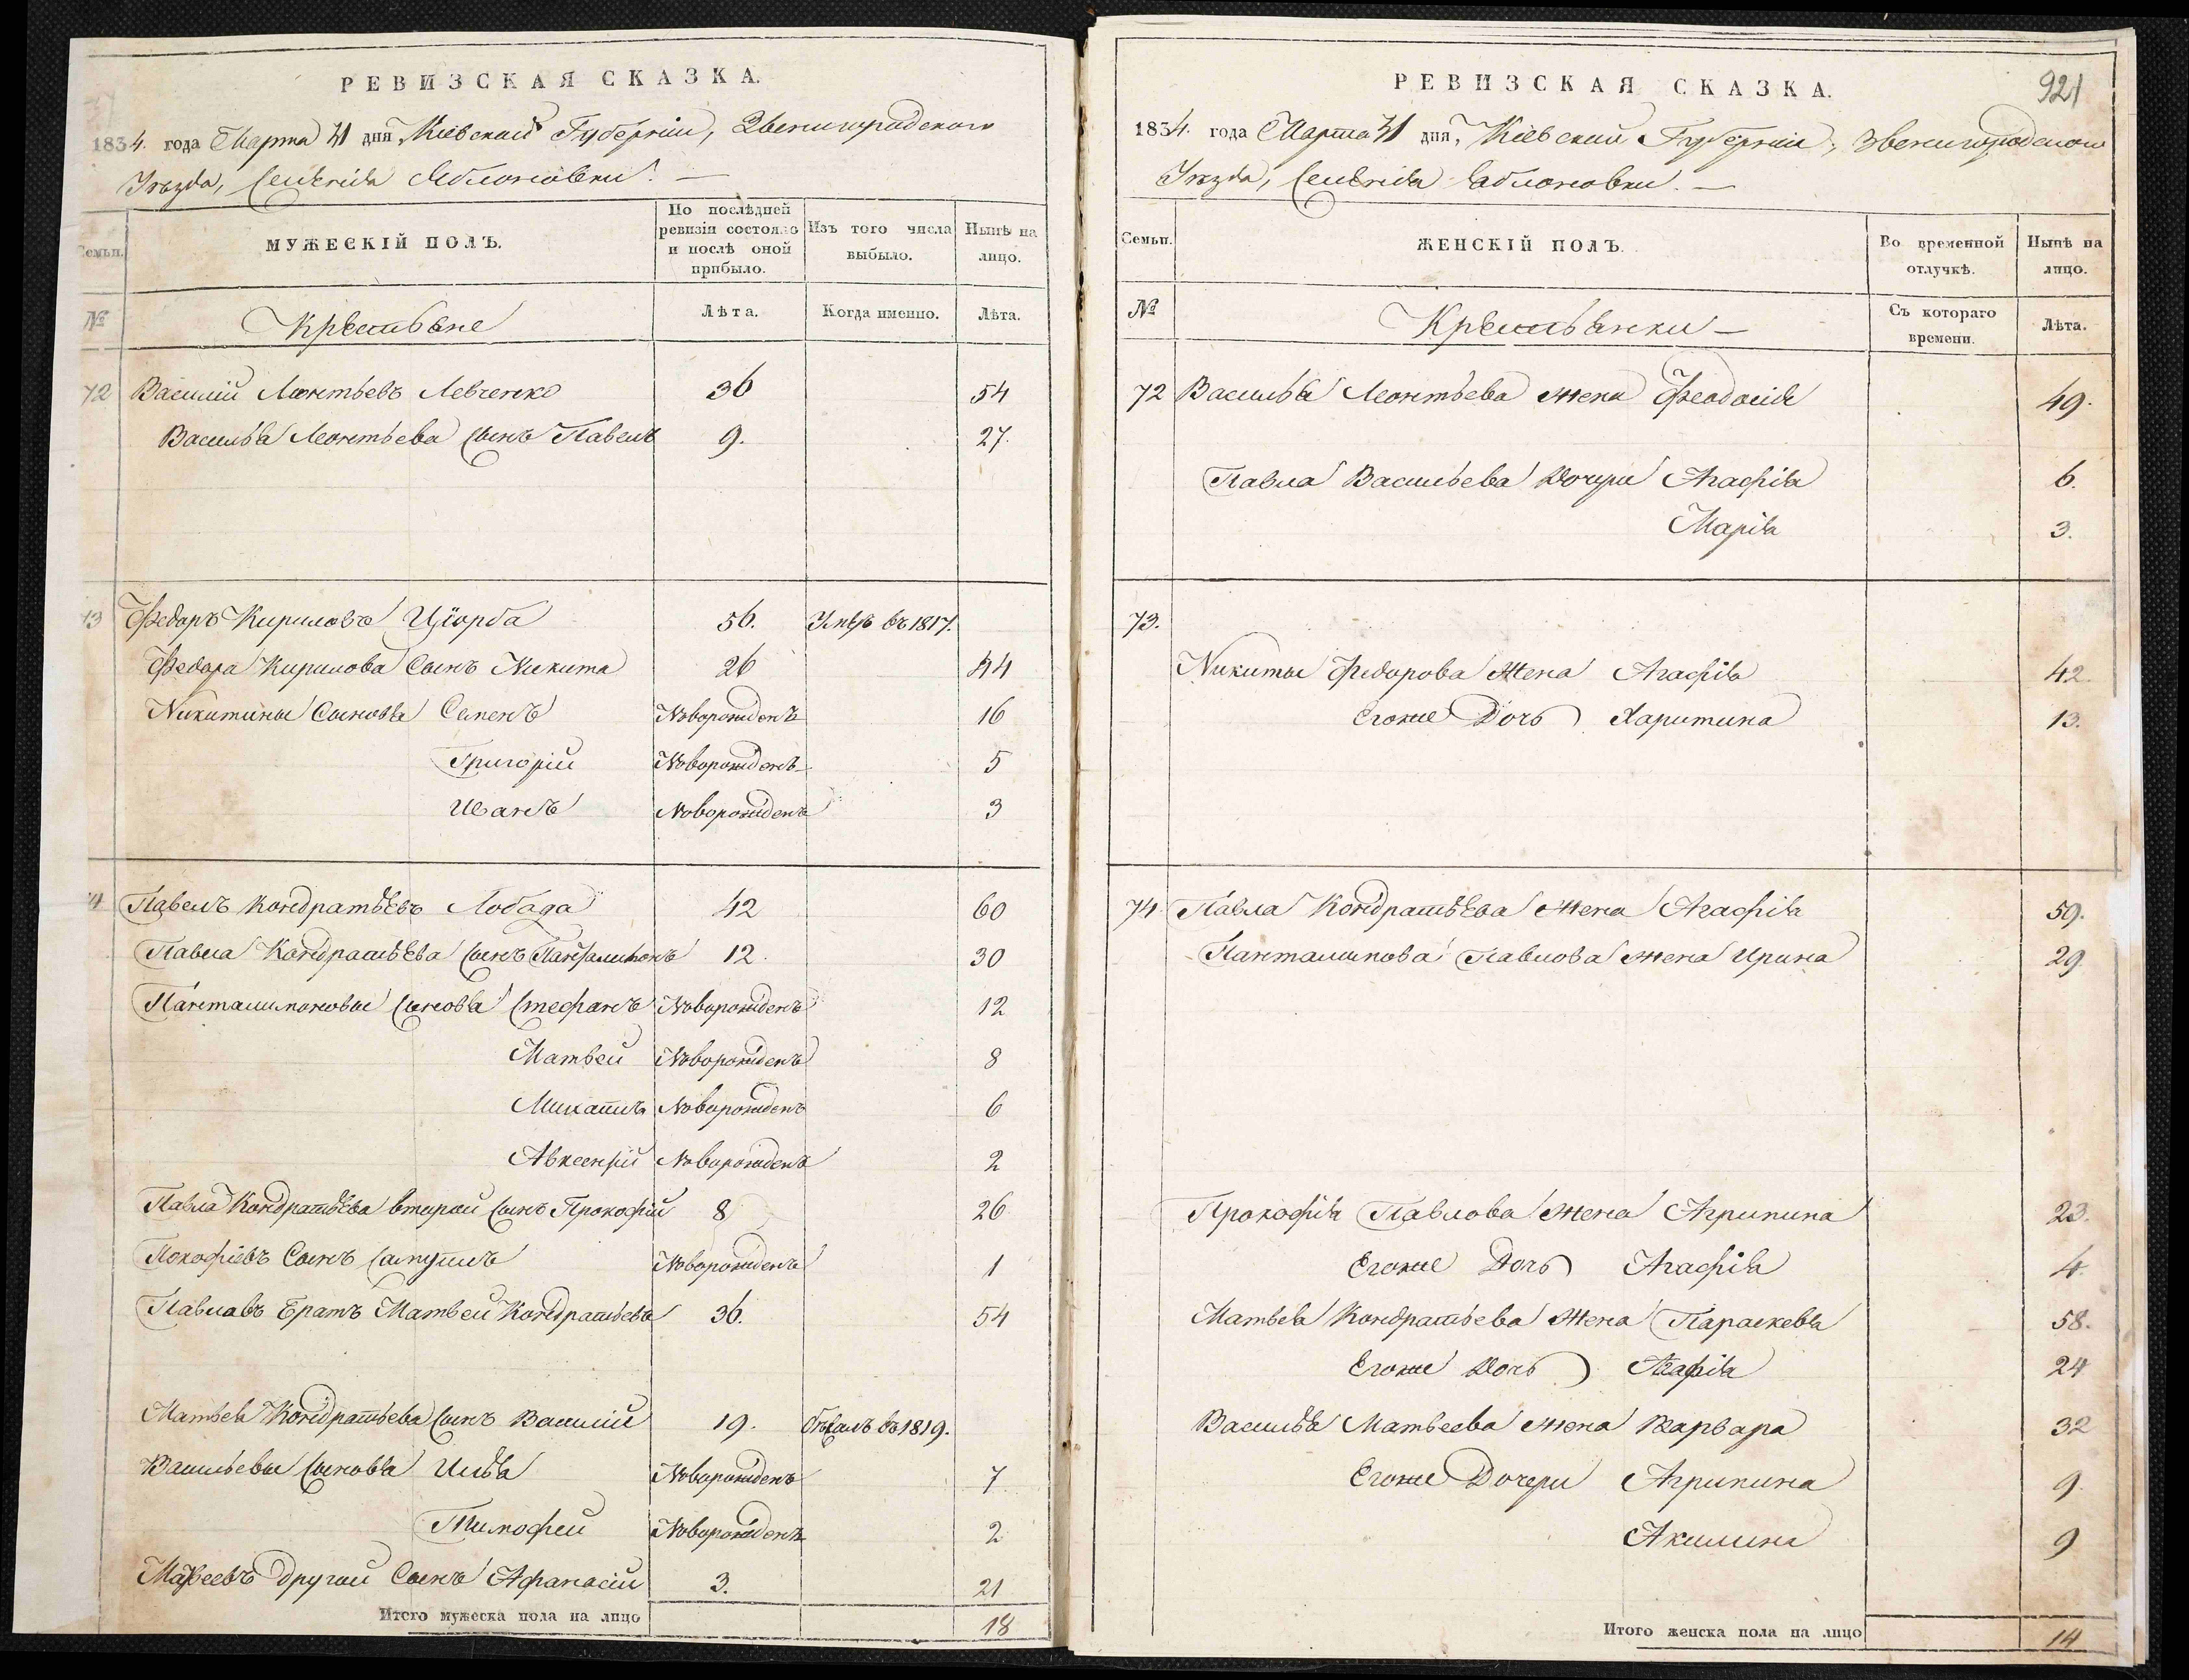 РЕВИЗСКАЯ СКАЗКА.
1834. года Марта 31 дня, Кіевской Губерніи, Звенигородскаго
Уѣзда, Селенія Яблоновки. —
Семьи.
МУЖЕСКІЙ ПОЛЪ.
По послѣдней ревизіи состояло и послѣ оной прибыло.
Изъ того числа выбыло.
Нынѣ на лицо.
№
Крестьяне
Лѣта.
Когда именно.
Лѣта.
72 Василій Леонтьевъ Левченко 36 54
Василья Леонтьева сынъ Павелъ 9. 27.
73 Федоръ Кириловъ Цюрба 56. Умеръ въ 1817.
Федора Кирилова Сынъ Никита 26 44
Никитины Сыновья Семенъ Новорожденъ 16
Григорій Новорожденъ 5
Иванъ Новорожденъ 3
74 Павелъ Кондратьевъ Лобада 42 60
Павла Кондратьева сынъ Панталимонъ 12. 30
Панталимоновы сыновья Стефанъ Новорожденъ 12
Матвей Новорожденъ 8
Новорожденъ 6
Авксентій Новорожденъ 2
Павла Кондратьева второй сынъ Прокофій 8 26
Покофіевъ Сынъ Самуилъ Новорожденъ 1
Павловъ Братъ Матвей Кондратьевъ 36. 54
Матвея Кондратьева сынъ Василій 19. Бѣжалъ въ 1819.
Васильевы сыновья Илья Новорожденъ 7
Тимофей Новорожденъ 2
Матвеевъ другой Сынъ Афанасій 3. 21
Итого мужеска пола на лицо 18
РЕВИЗСКАЯ СКАЗКА.
921
1834. года Марта 31 дня, Кіевской Губерніи, Звенигородскаго
Уѣзда, Селенія Яблоновки. —
Семьи.
ЖЕНСКІЙ ПОЛЪ.
Во временной отлучкѣ.
Нынѣ на лицо.
№
Крестьянки —
Съ котораго времени.
Лѣта.
72 Василья Леонтьева жена Феодосія 49.
Павла Васильева Дочери Агафія 6.
Марія 3.
73.
Никиты Федорова Жена Агафія 42.
Егоже Дочь Харитина 13.
74. Павла Кондратьева Жена Агафія 59.
Панталимова Павлова жена Ирина 29
Прокофія Павлова Жена Агрипина 23.
Егоже Дочь Агафія 4.
Матвея Кондратьева Жена Параскевья 58.
Егоже Дочь Агафія 24
Василья Матвеева жена Варвара 32
Егоже Дочери Агрипина 9
Акилина 9
Итого женска пола на лицо 14